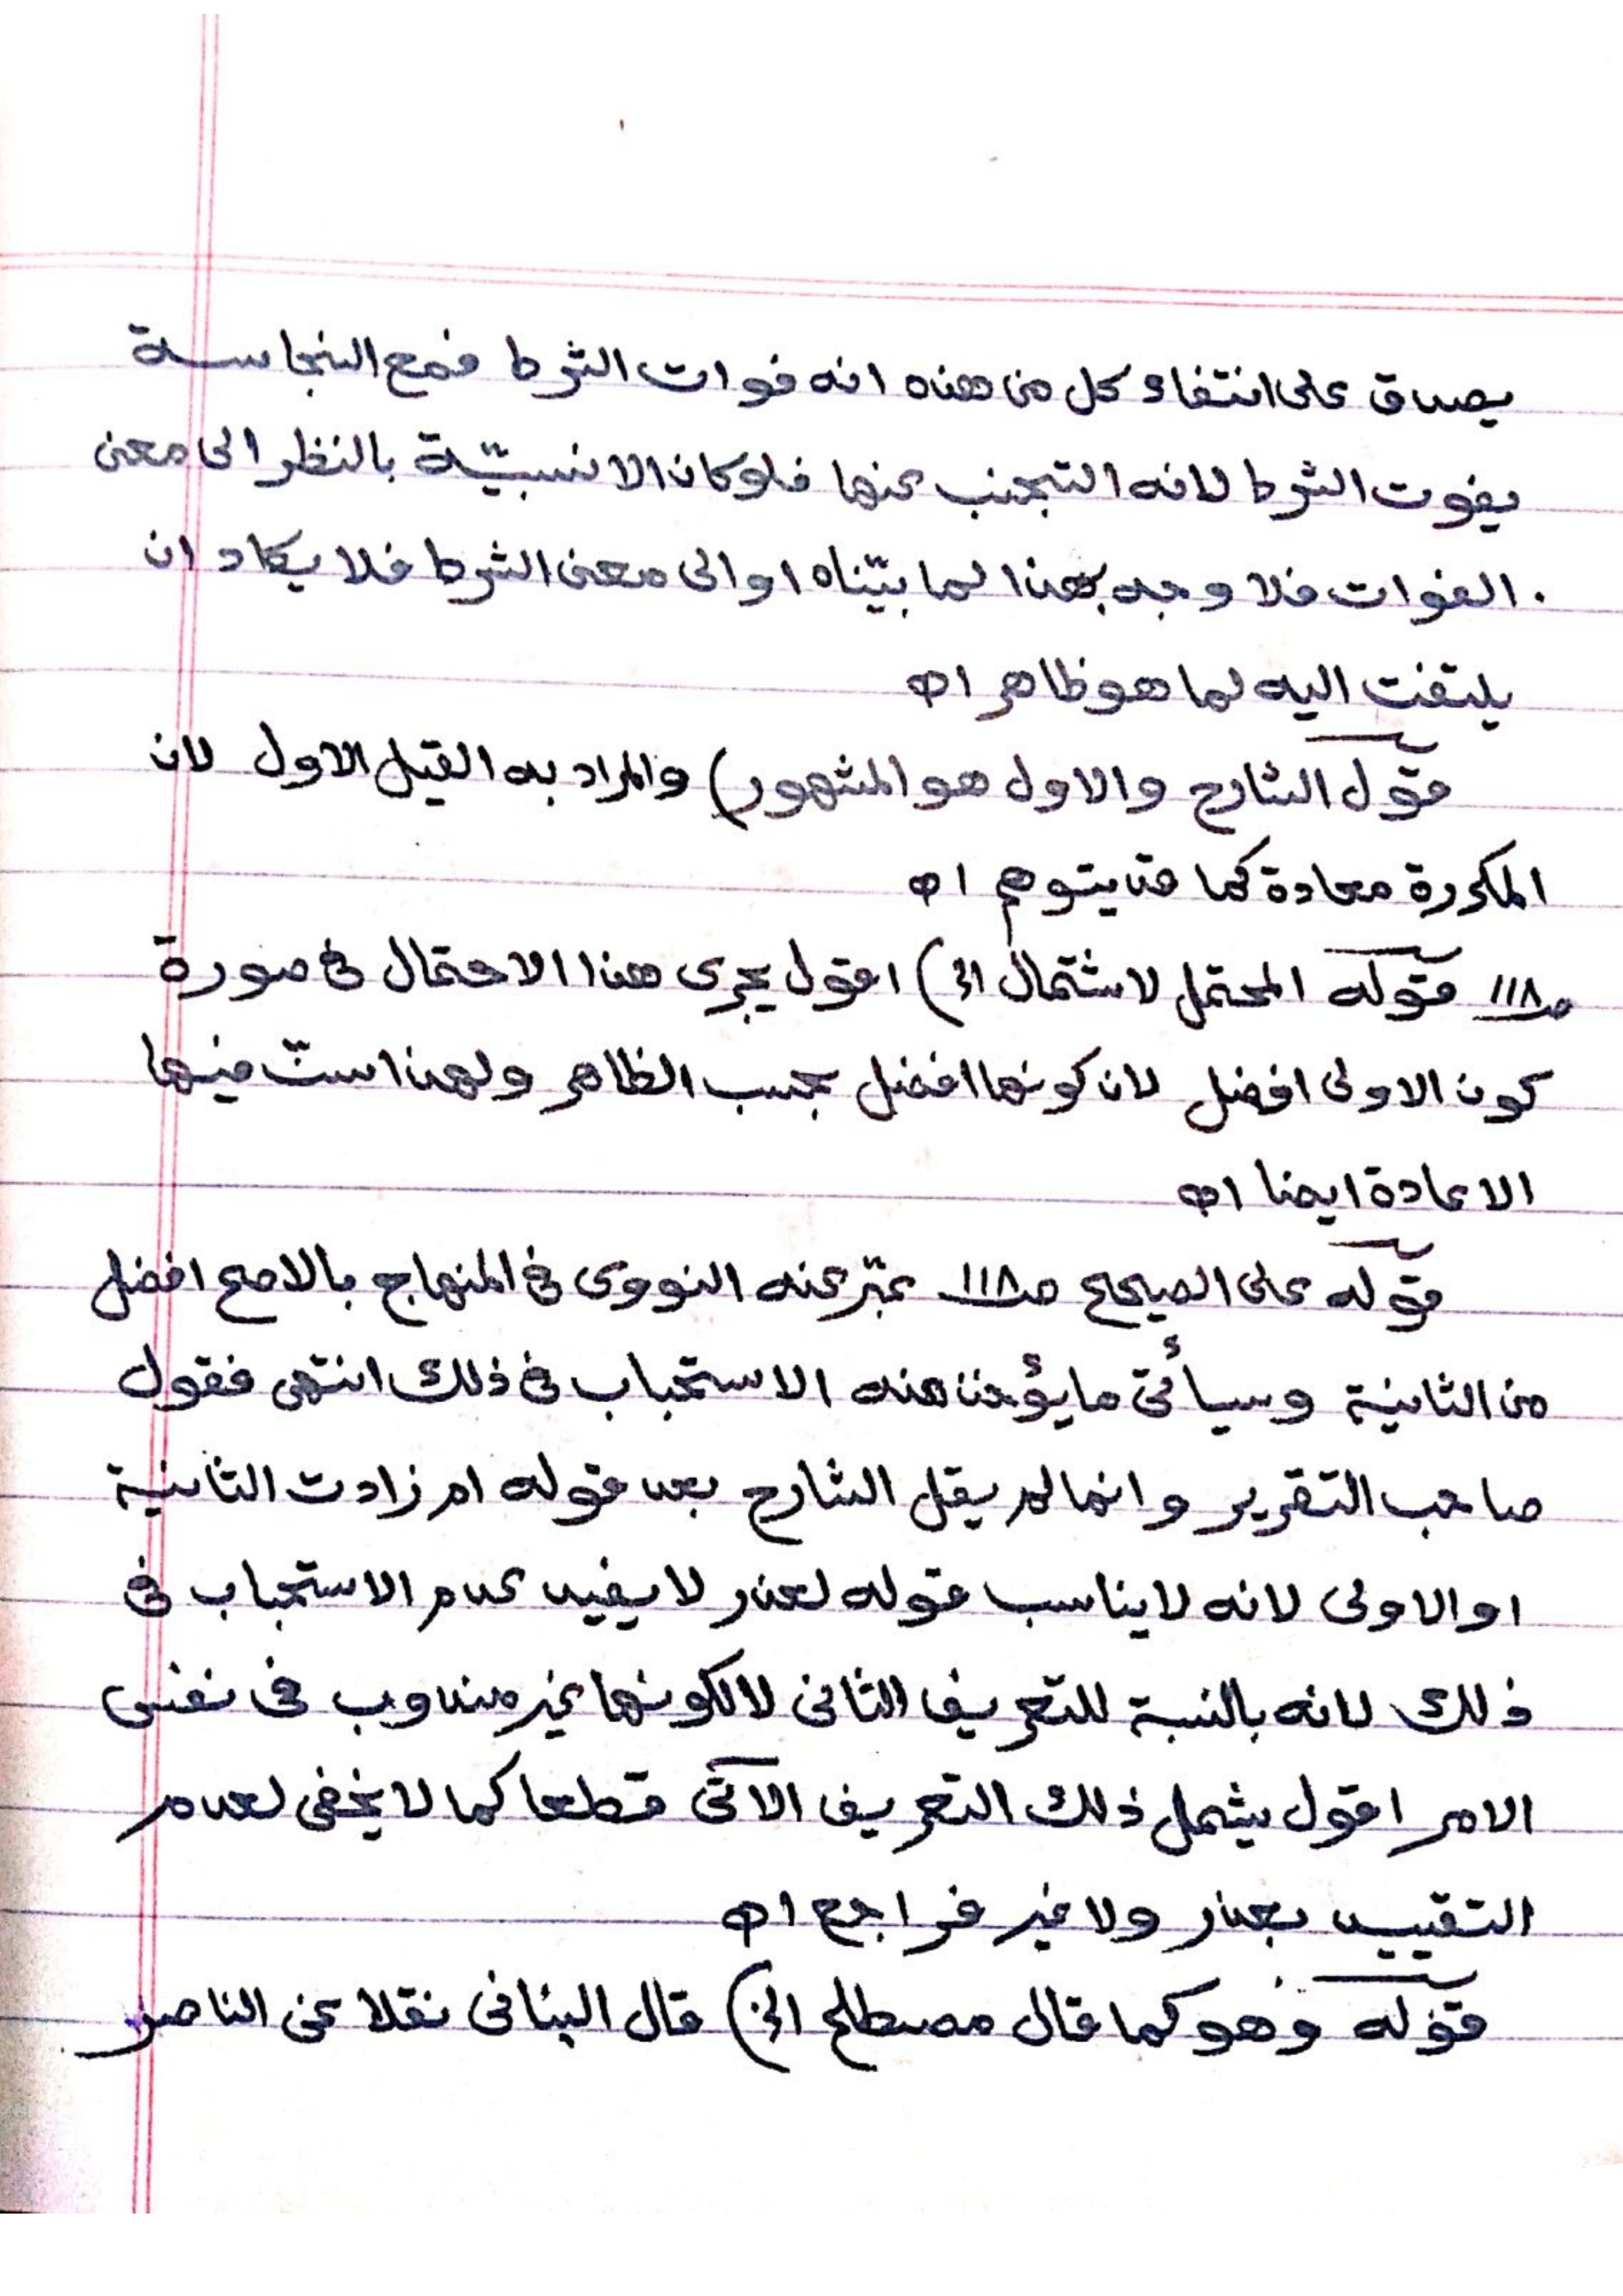 يصدق على انتفاء كل من هذه انه فوات الشرط فمع النجاسة
يفوت الشرط لانه التجنب عنها فلو كان الانسبيّة بالنظر الى معنى
الفوات فلا وجه بهذا لما بيّناه او الى معنى الشرط فلا يكاد ان
يلتفت اليه لما هو ظاهر اه
قول الشارح والاول هو المشهور) والمراد به القيل الاول لان
المكررة معادة كما قد يتوهم اه
صـ١١٨ قوله المحتمل لاشتمال الخ) اقول يجرى هذا الاحتمال فى صورة
كون الاولى افضل لان كونها افضل بحسب الظاهر ولهذا استّ فيها
الاعادة ايضا اه
قوله على الصحيح صـ١١٨ عبّر عنه النووى فى المنهاج بالاصح افضل
من الثانية وسيأتى ما يؤخذ منه الاستحباب فى ذلك انتهى فقول
صاحب التقرير وانما لم يقل الشارح بعد قوله ام زادت الثانية
او الاولى لانه لا يناسب قوله لعذر لا يفيد عدم الاستحباب فى
ذلك لانه بالنسبة للتعريف الثانى لا لكونها غير مندوب فى نفس
الامر اقول يشمل ذلك التعريف الآتى قطعا كما لا يخفى لعدم
التقييد بعذر ولا غير فراجع اه
قوله وهو كما قال مصطلح الخ) قال البنانى نقلا عن الناصر